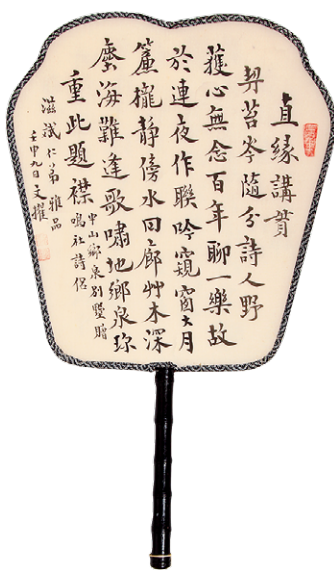 直緣講貫
契苔岑隨分詩人野
獲心無念百年聊一樂故
於連夜作聯吟窺窗大月
簾櫳靜傍水回廊艸木深
塵海難逢歌嘯地鄉泉珍
重此題襟
中山鄉泉別墅贈
鳴社詩侶
滋誠仁弟雅品
壬申九日文擢